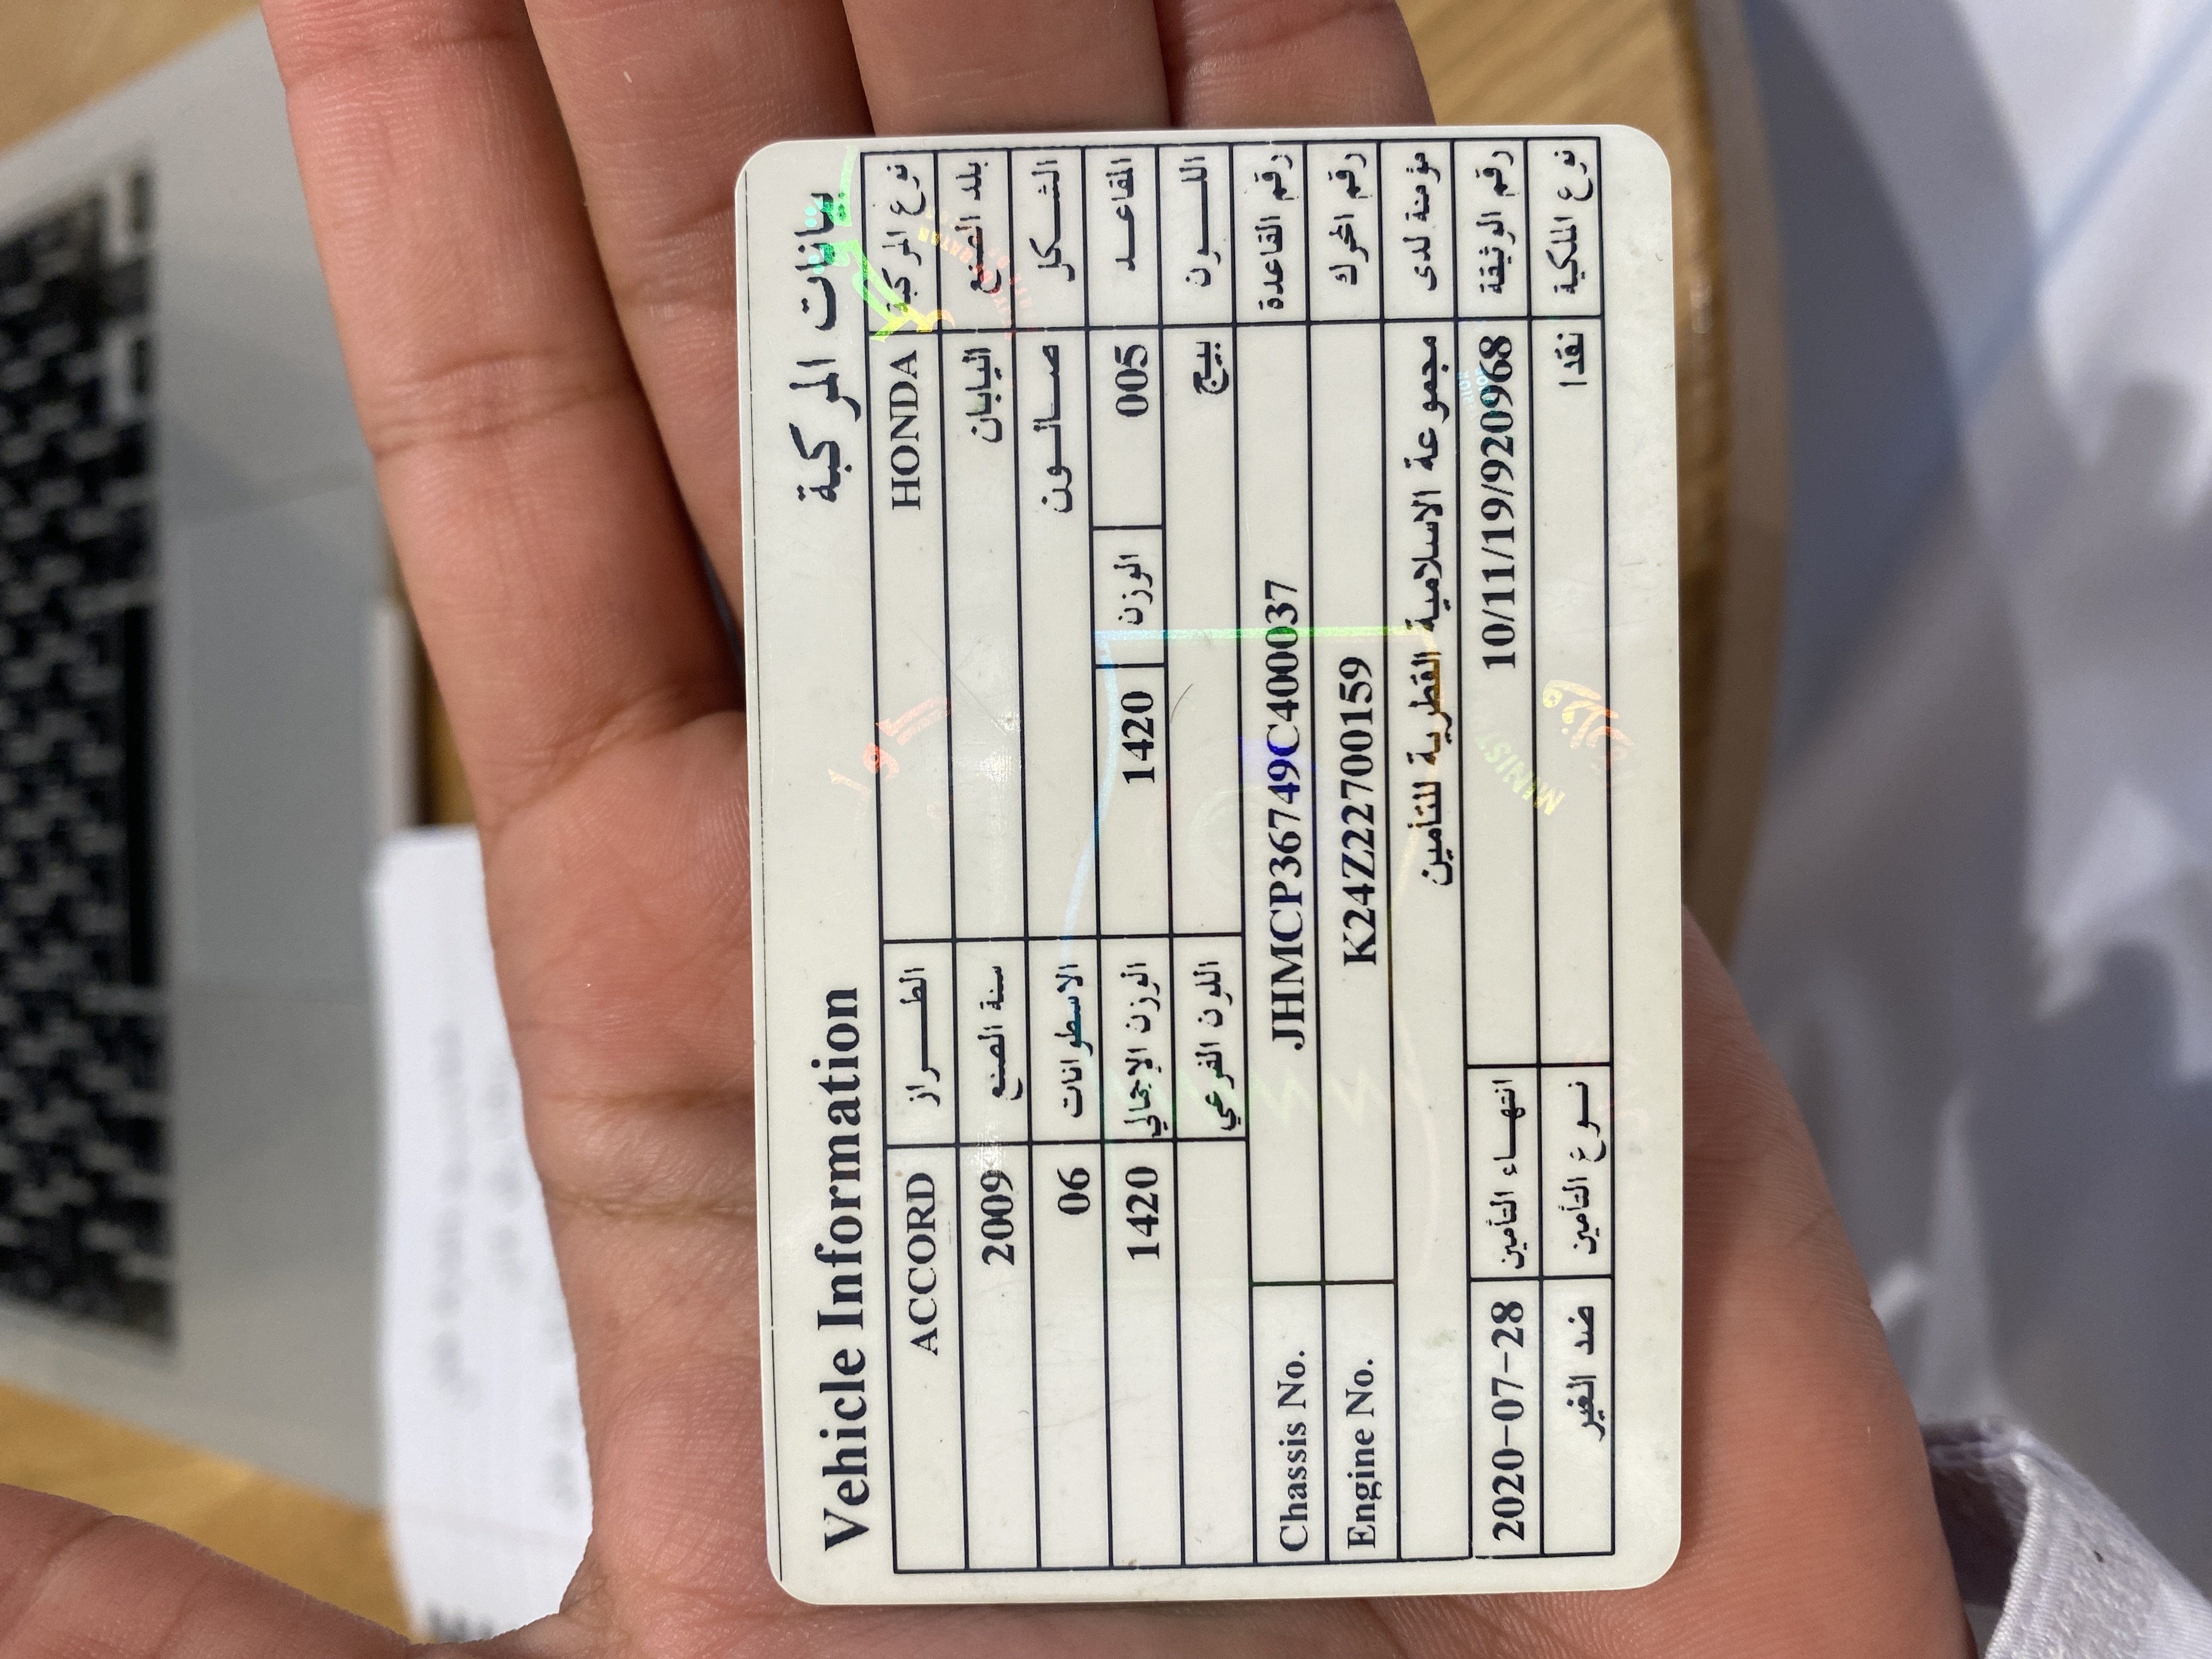 بيانات المركبة Vehicle Information
نوع المركبة HONDA الطـــراز ACCORD
بلد الصنع اليابان سنة الصنع 2009
الشـــكل صـــالـــون الاسطوانات 06
المقاعـــد 005 الوزن 1420 الوزن الإجمالي 1420
اللـــــون بيج اللون الفرعي
رقم القاعدة JHMCP36749C400037 Chassis No.
رقم المحرك K24Z22700159 Engine No.
مؤمنة لدى مجموعة الاسلامية القطرية للتأمين
رقم الوثيقة 10/11/19/920968 انتهـــاء التأمين 2020-07-28
نوع الملكية نقدا نـــوع التأمين ضد الغير